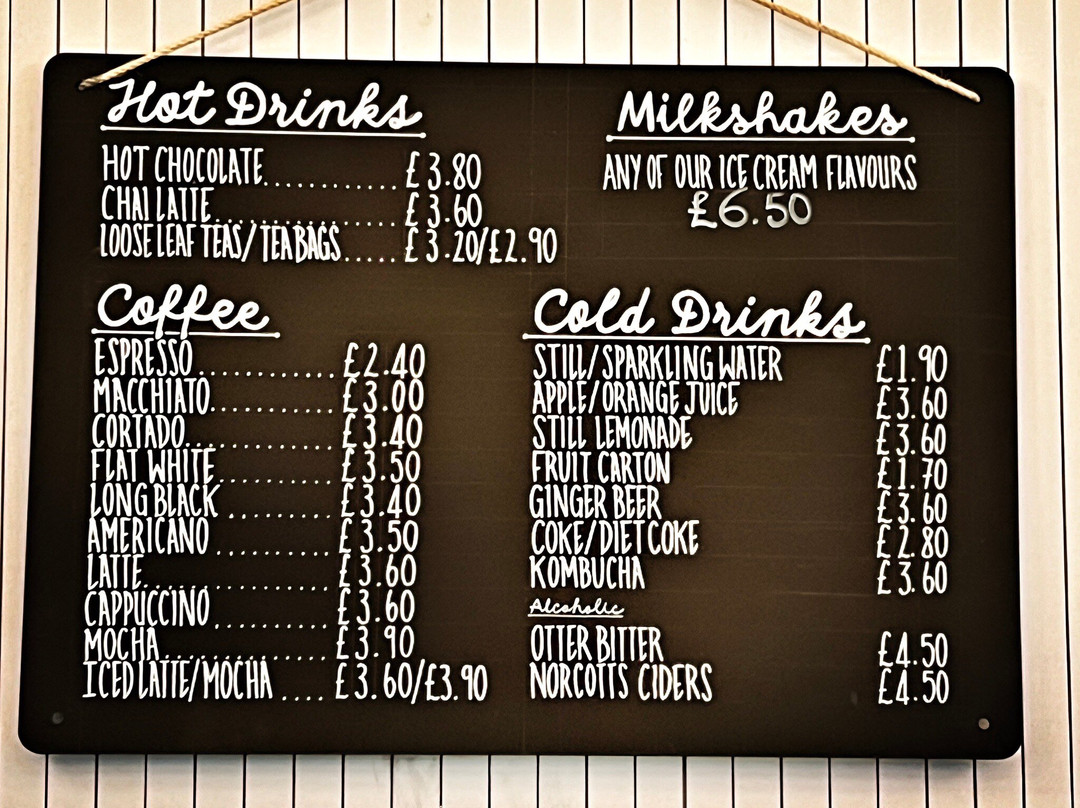 Hot Drinks
HOT CHOCOLATE............ £3.80
CHAI LATTE................ £3.60
LOOSE LEAF TEAS/TEABAGS..... £3.20/£2.90
Milkshakes
ANY OF OUR ICE CREAM FLAVOURS
£6.50
Coffee
ESPRESSO............ £2.40
MACCHIATO........... £3.00
CORTADO............. £3.40
FLAT WHITE.......... £3.50
LONG BLACK ......... £3.40
AMERICANO .......... £3.50
LATTE................ £3.60
CAPPUCCINO .......... £3.60
MOCHA............... £3.90
ICED LATTE/MOCHA .... £3.60/£3.90
Cold Drinks
STILL/SPARKLING WATER £1.90
APPLE/ORANGE JUICE £3.60
STILL LEMONADE £3.60
FRUIT CARTON £1.70
GINGER BEER £3.60
COKE/DIET COKE £2.80
KOMBUCHA £3.60
Alcoholic
OTTER BITTER £4.50
NORCOTTS CIDERS £4.50